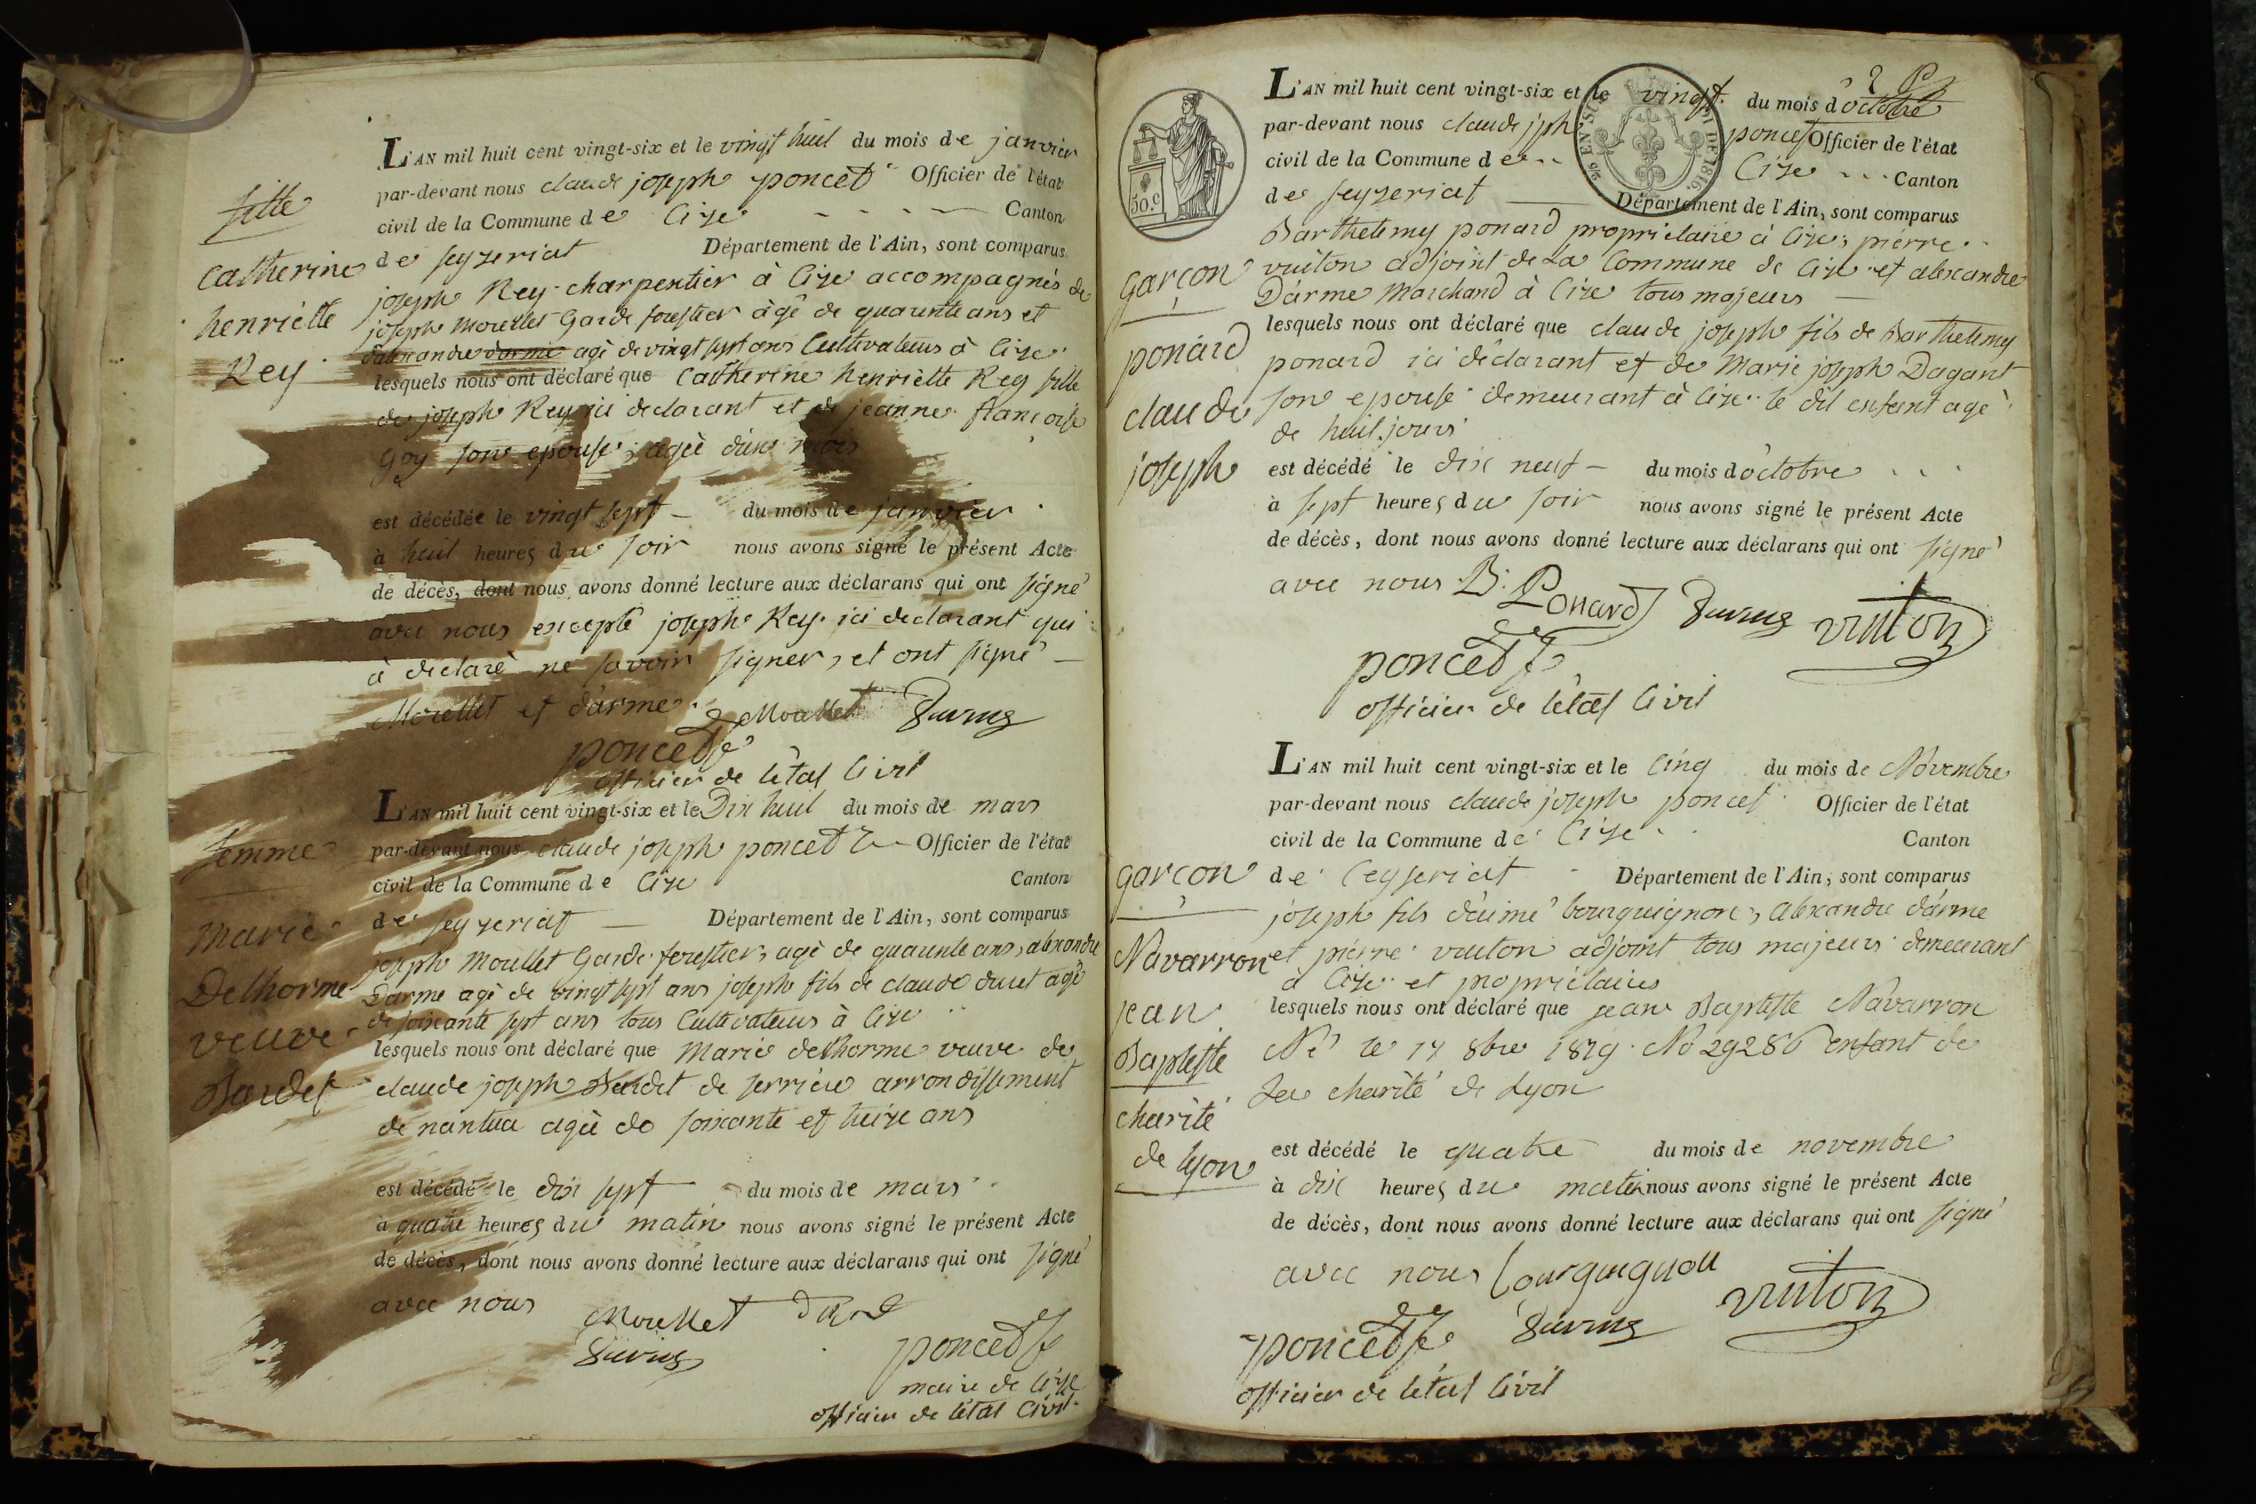 L'AN mil huit cent vingt-six et le vingt huit du mois de janvier
par-devant nous claude joseph poncet Officier de l'état
civil de la Commune de Cize Canton
de seyzeriat Département de l'Ain, sont comparus
joseph Rey charpentier à Cize accompagnés de
joseph Moullet Garde forestier agé de quarente ans et
d'alexandre darme agé de vingt sept ans Cultivateurs à Cize
lesquels nous ont déclaré que Catherine henriette Rey fille
de joseph Rey ici declarant et de jeanne francoise
Goy son epouse, agée d'un mois
est décédée le vingt sept du mois de janvier
à huit heures du soir nous avons signé le présent Acte
de décès, dont nous avons donné lecture aux déclarans qui ont signé
avec nous excepté joseph Rey ici declarant qui
à declaré ne savoir signer, et ont signé
Morellet et d'arme
Moullet
poncet
officier de l'état Civil
fille
Catherine
henriette
Rey
L'AN mil huit cent vingt-six et le Dix huit du mois de mars
par-devant nous claude joseph poncet Officier de l'état
civil de la Commune de Cize Canton
de seyzeriat Département de l'Ain, sont comparus
joseph Moullet Garde forestier, agé de quarente ans, alexandre
Darme agé de vingt sept ans joseph fils de claude duret agé
de soixante sept ans tous Cultivateurs à Cize
lesquels nous ont déclaré que Marie delhorme veuve de
claude joseph Baudet de serriere arrondissement
de nantua agée de soixante et treize ans
est décédé le dix sept du mois de mars
à quatre heures du matin nous avons signé le présent Acte
de décès, dont nous avons donné lecture aux déclarans qui ont signé
avec nous
Moullet
poncet
maire de Cize
officier de l'état Civil
femme
Marie
Delhorme
veuve
Baudet
50.c
L'AN mil huit cent vingt-six et le vingt du mois d'octobre
par-devant nous claude jph poncet Officier de l'état
civil de la Commune de Cize Canton
de seyzeriat Département de l'Ain, sont comparus
Barthelemy ponard propriétaire à Cize, pierre
vuiton adjoint de La Commune de Cize et alexandre
D'arme Marchand à Cize tous majeurs
lesquels nous ont déclaré que claude joseph fils de Barthelemy
ponard ici déclarant et de Marie joseph Dagant
son epouse demeurant à Cize le dit enfant agé
de huit jours
est décédé le dix neuf du mois d'octobre
à sept heures du soir nous avons signé le présent Acte
de décès, dont nous avons donné lecture aux déclarans qui ont signé
avec nous B. Ponard vuiton
poncet
officier de l'état Civil
garçon
ponard
claude
joseph
L'AN mil huit cent vingt-six et le Cinq du mois de Novembre
par-devant nous claude joseph poncet Officier de l'état
civil de la Commune de Cize Canton
de Ceyseriat Département de l'Ain, sont comparus
joseph fils d'aimé bourguignon, alexandre d'arme
et pierre vuiton adjoint tous majeurs demeurant
à Cize et propriétaires
lesquels nous ont déclaré que jean Baptiste Navarron
Né le 17 8bre 1819 No 29286 enfant de
La charité de Lyon
est décédé le quatre du mois de novembre
à dix heures du matin nous avons signé le présent Acte
de décès, dont nous avons donné lecture aux déclarans qui ont signé
avec nous bourguignon vuiton
poncet
officier de l'état Civil
garçon
Navarron
jean
Baptiste
charité
de Lyon